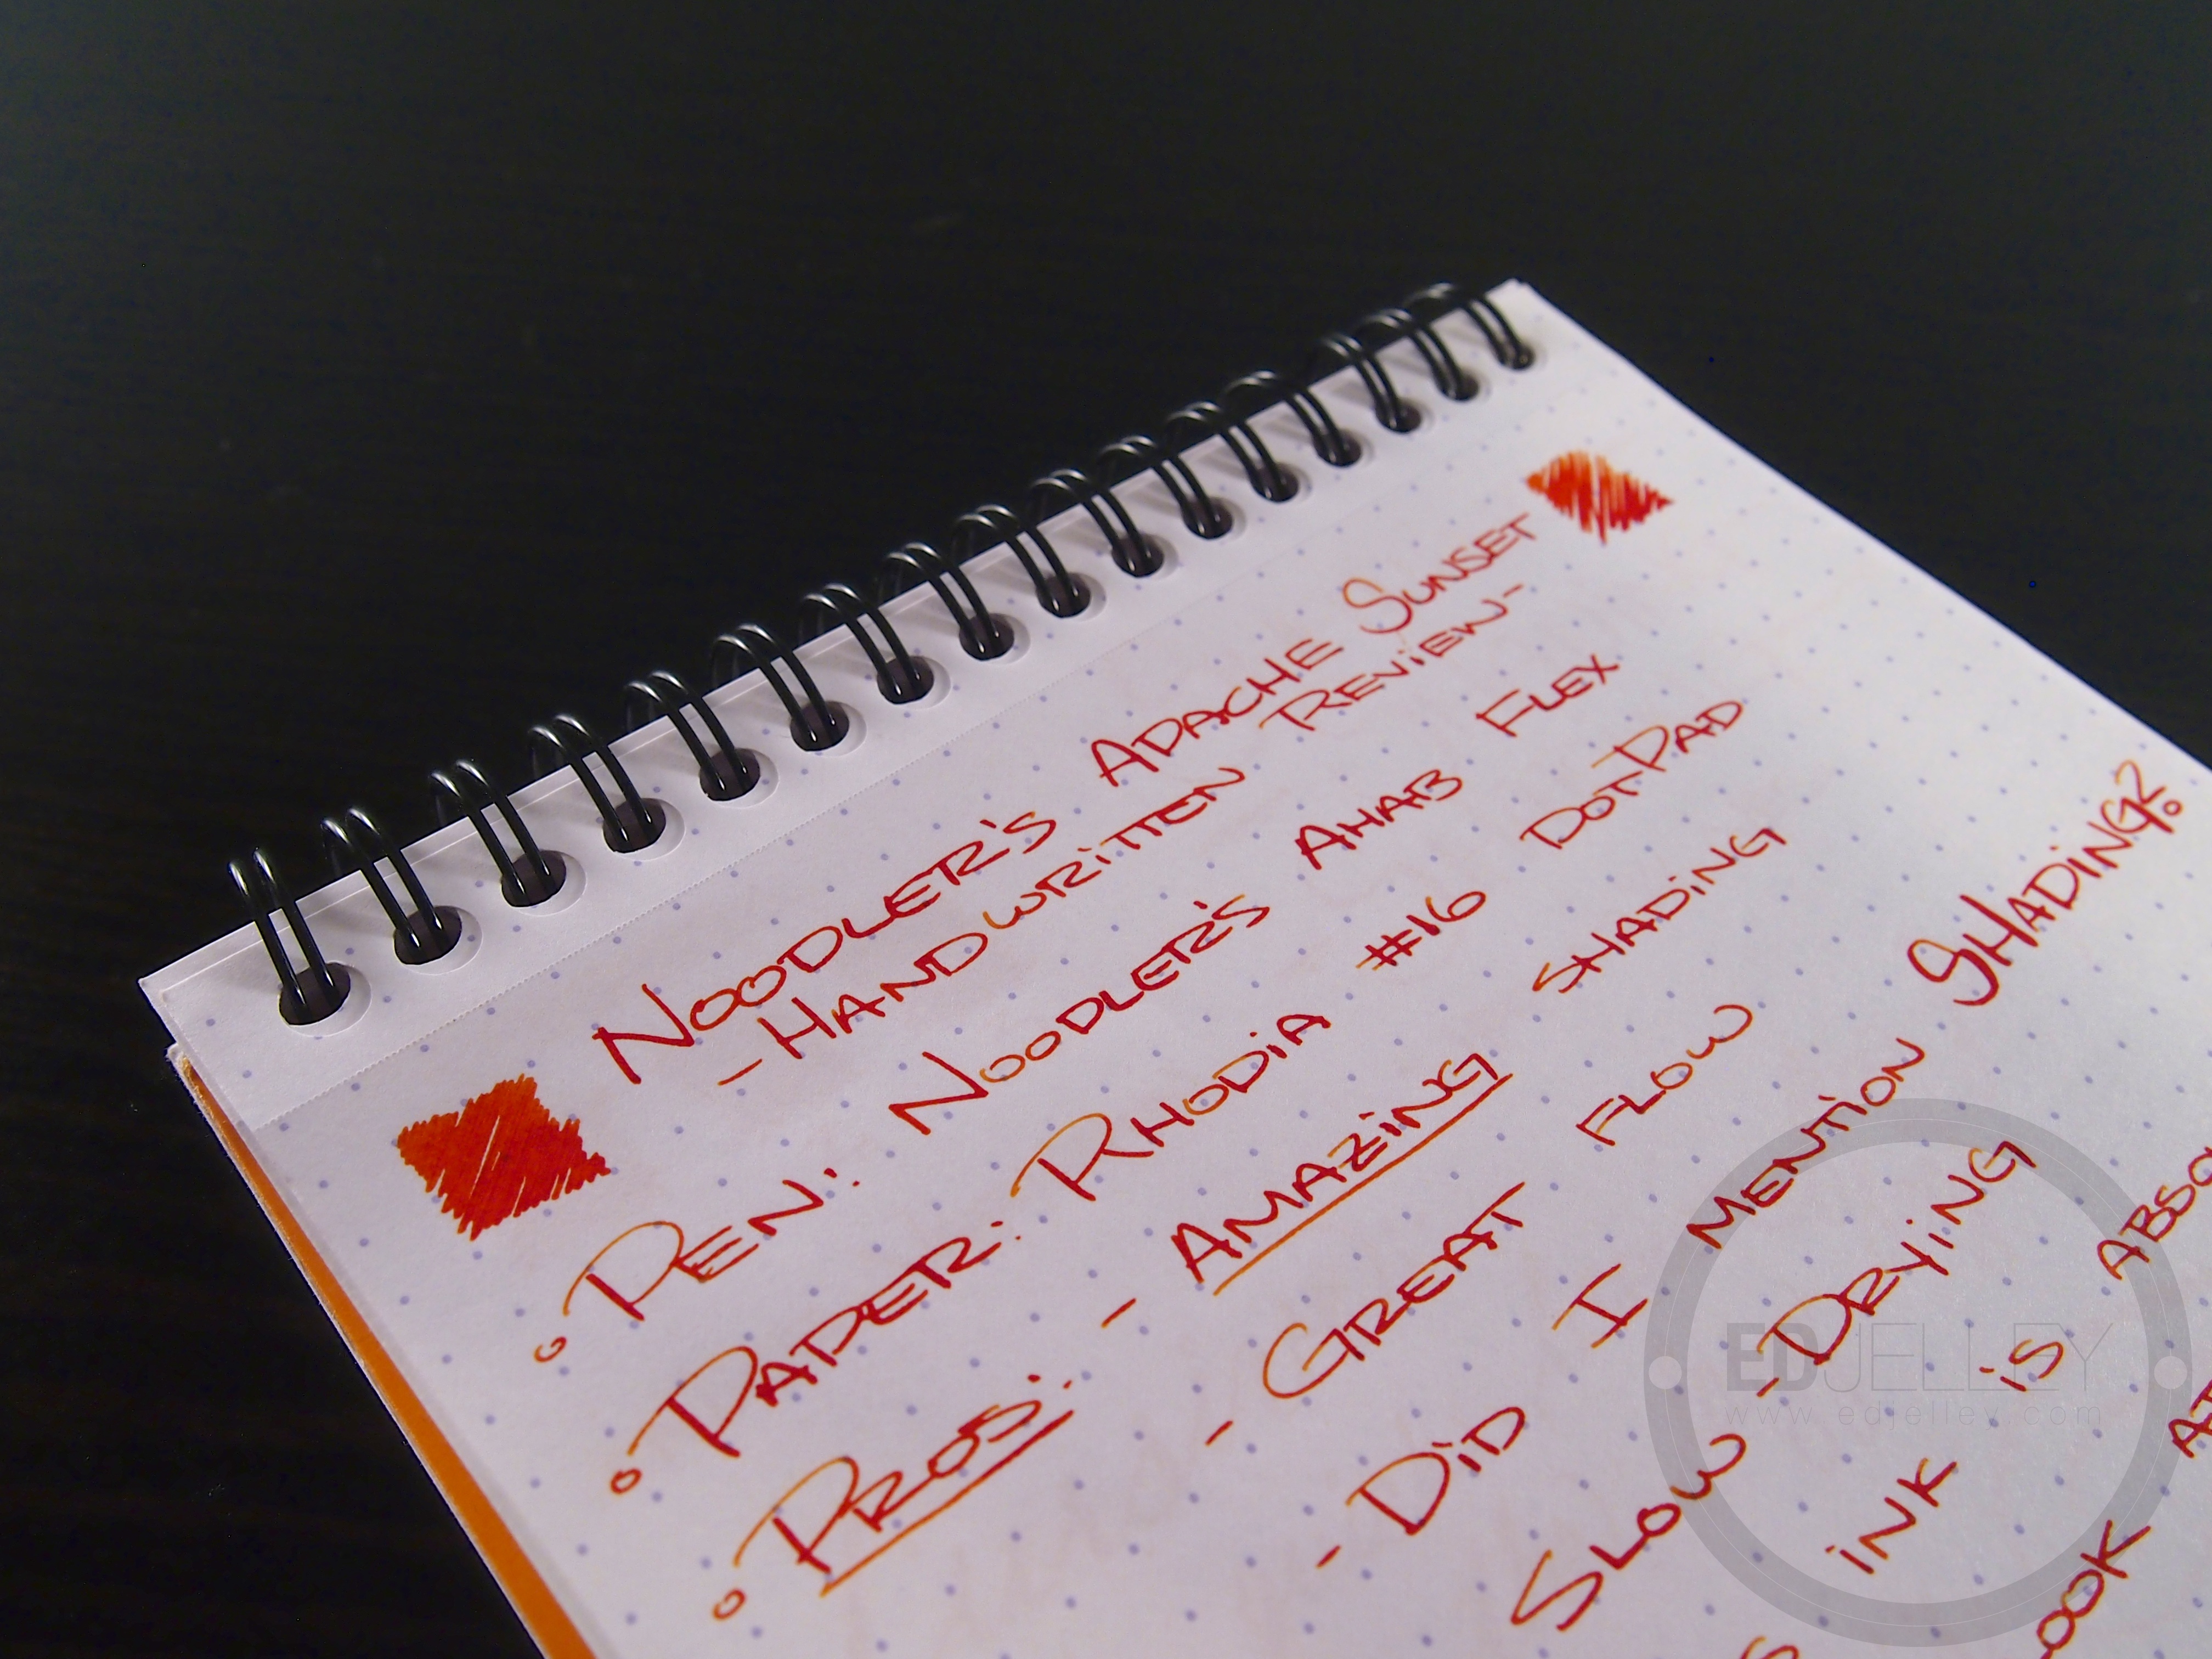 Noodler's Apache Sunset
- Handwritten Review -
° Pen: Noodler's Ahab Flex
° Paper: Rhodia #16 DotPad
° Pros: - Amazing Shading
- Great Flow
- Did I mention Shading?
Slow-Drying
ink is
EDJELLEY
www.edjelley.com